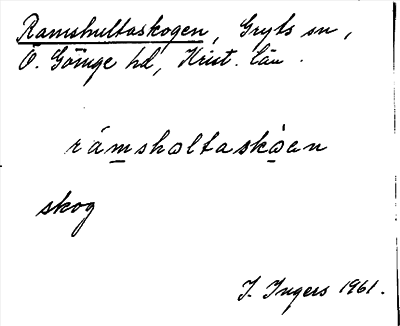 Ramshultaskogen, Gryts sn,
Ö. Göinge hd, Krist. län.
rámshaltaskò̱en
skog
I. Ingers 1961.